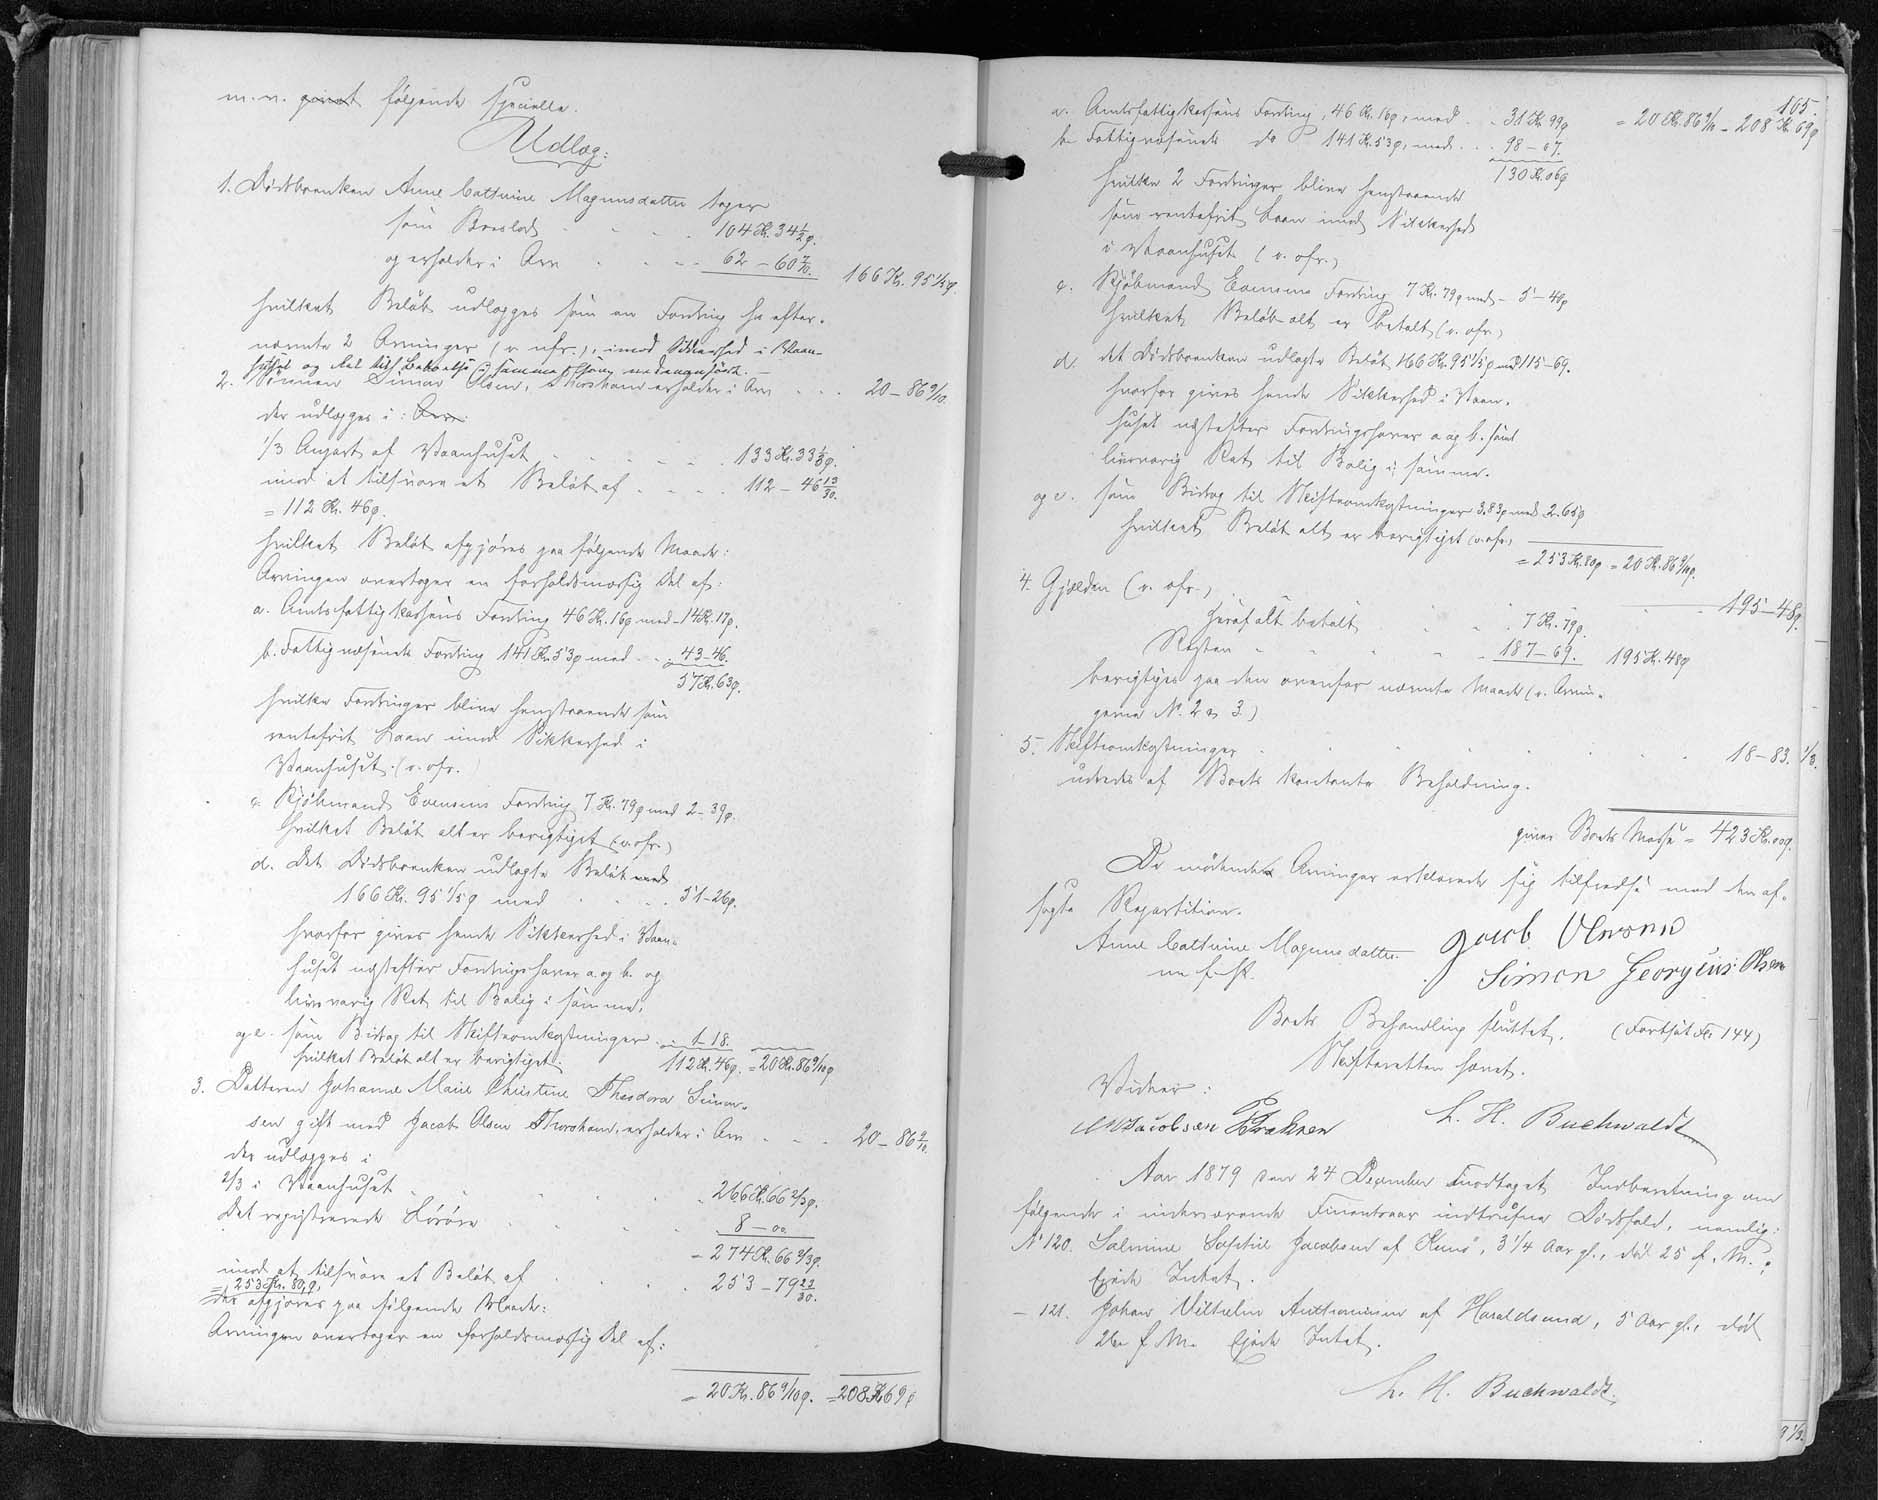 m.v. givet følgende specielle
Udlæg:
1. Dødsboenken Anne Cathrine Magnusdatter tager
som Boeslod . . . 104 Kr. 34 1/2 ø.
og erholder i Arv . . . 62 – 60 7/10. 166 Kr. 95 1/5 ø.
hvilket Beløb udlægges som en Fordring hos efter-
nævnte 2 Arvinger (v. nfr.), imod Sikkerhed i Vaan-
huset og
2. Sønnen Simon Olsen, Thorshavn erholder i Arv . . . 20 – 86 9/10.
der udlægges i : Arv
1/3 Anpart af Vaanhuset . . . 133 Kr. 33 1/3 ø.
imod at tilsvare et Beløb af . . . 112 – 46 13/30.
= 112 Kr. 46 ø.
hvilket Beløb afgjøres paa følgende Maade:
Arvingen overtager en forholdsmæssig Del af:
a. Amtsfattigkassens Fordring 46 Kr. 16 ø med – 14 Kr. 17 ø.
b. Fattigvæsenets Fordring 141 Kr. 53 ø med . . 43 – 46.
57 Kr. 63 ø.
hvilke Fordringer blive henstaaende som
rentefrit Laan imod Sikkerhed i
Vaanhuset. (v. ofr.)
c. Kjøbmand Evensens Fordring 7 Kr. 79 ø med 2 – 39 ø.
hvilket Beløb alt er berigtiget (v. ofr.)
d. Det Dødsboenken udlagte Beløb med
166 Kr. 95 1/5 ø med . . . 51 – 26 ø.
hvorfor gives hende Sikkerhed i Vaan-
huset næstefter Fordringshaver a og b. og
livsvarig Ret til Bolig i samme.
og e. som Bidrag til Skifteomkostninger . . 1 – 18.
hvilket Beløb alt er berigtiget. 112 Kr. 46 ø. = 20 Kr. 86 9/10 ø
3. Datteren Johanne Marie Christine Theodora Simon-
sen gift med Jacob Olsen Thorshavn, erholder i Arv . . . 20 – 86 9/10.
der udlægges i
2/3 i Vaanhuset . . . 266 Kr. 66 2/3 ø.
Det registrerede Løsøre . . . 8 – 00
= 274 Kr. 66 2/3 ø.
imod at tilsvare et Beløb af . . . 253 – 79 23/30.
= 253 Kr. 80 ø.
der afgjøres paa følgende Maade:
Arvingen overtager en forholdsmæssig Del af:
= 20 Kr. 86 9/10 ø. = 208 Kr. 69 ø
165.
a. Amtsfattigkassens Fordring, 46 Kr. 16 ø, med . . 31 Kr. 99 ø = 20 Kr. 86 9/10 – 208 Kr. 69 ø
b. Fattigvæsenets do 141 Kr. 53 ø, med . . . 98 – 07.
130 Kr. 06 ø
hvilke 2 Fordringer blive henstaaende
som rentefrit Laan imod Sikkerhed
i Vaanhuset (v. ofr.)
c. Kjøbmand Evensens Fordring 7 Kr. 79 ø med – 5 – 40 ø
hvilket Beløb alt er betalt (v. ofr.)
d. det Dødsboenken udlagte Beløb 166 Kr. 95 1/5 ø med 115 – 69.
hvorfor gives hende Sikkerhed i Vaan-
huset næstefter Fordringshaver a og b. samt
livsvarig Ret til Bolig i samme.
og e. som Bidrag til Skifteomkostninger 3.83 ø med 2.65 ø
hvilket Beløb alt er berigtiget (v. ofr.)
= 253 Kr. 80 ø = 20 Kr. 86 9/10 ø.
4. Gjælden (v. ofr.) . . . 195 – 48 ø.
heraf alt betalt . . . 7 Kr. 79 ø.
Resten . . . 187 – 69. 195 Kr. 48 ø
berigtiges paa den ovenfor nævnte Maade (v. Arvin-
gerne No. 2 og 3.)
5. Skifteomkostninger . . . 18 – 83. 1/3.
udredes af Boets kontante Beholdning.
giver Boets Masse = 423 Kr. 00 ø.
De mødende Arvinger erklærede sig tilfredse med den af-
sagte Repartition.
Anne Cathrine Magnusdatter Jacob Olesens
m. f. P. Simon Georgius Olsen
Boets Behandling sluttet. (Fortsat Fol. 144)
Skifteretten hævet.
Vidner:
Jacobsen L. H. Buchwaldt
Aar 1879 den 24 December modtaget Indberetning om
følgende i indeværende Finantsaar indtrufne Dødsfald, nemlig:
No 120. Jacobsen af Kunö, 3 1/4 Aar gl., død 25 f. M.;
Ejede Intet.
– 121. Johan Vilhelm af Haraldsund, 5 Aar gl., død
26 f. M. Ejede Intet.
L. H. Buchwaldt.
9 1/3.